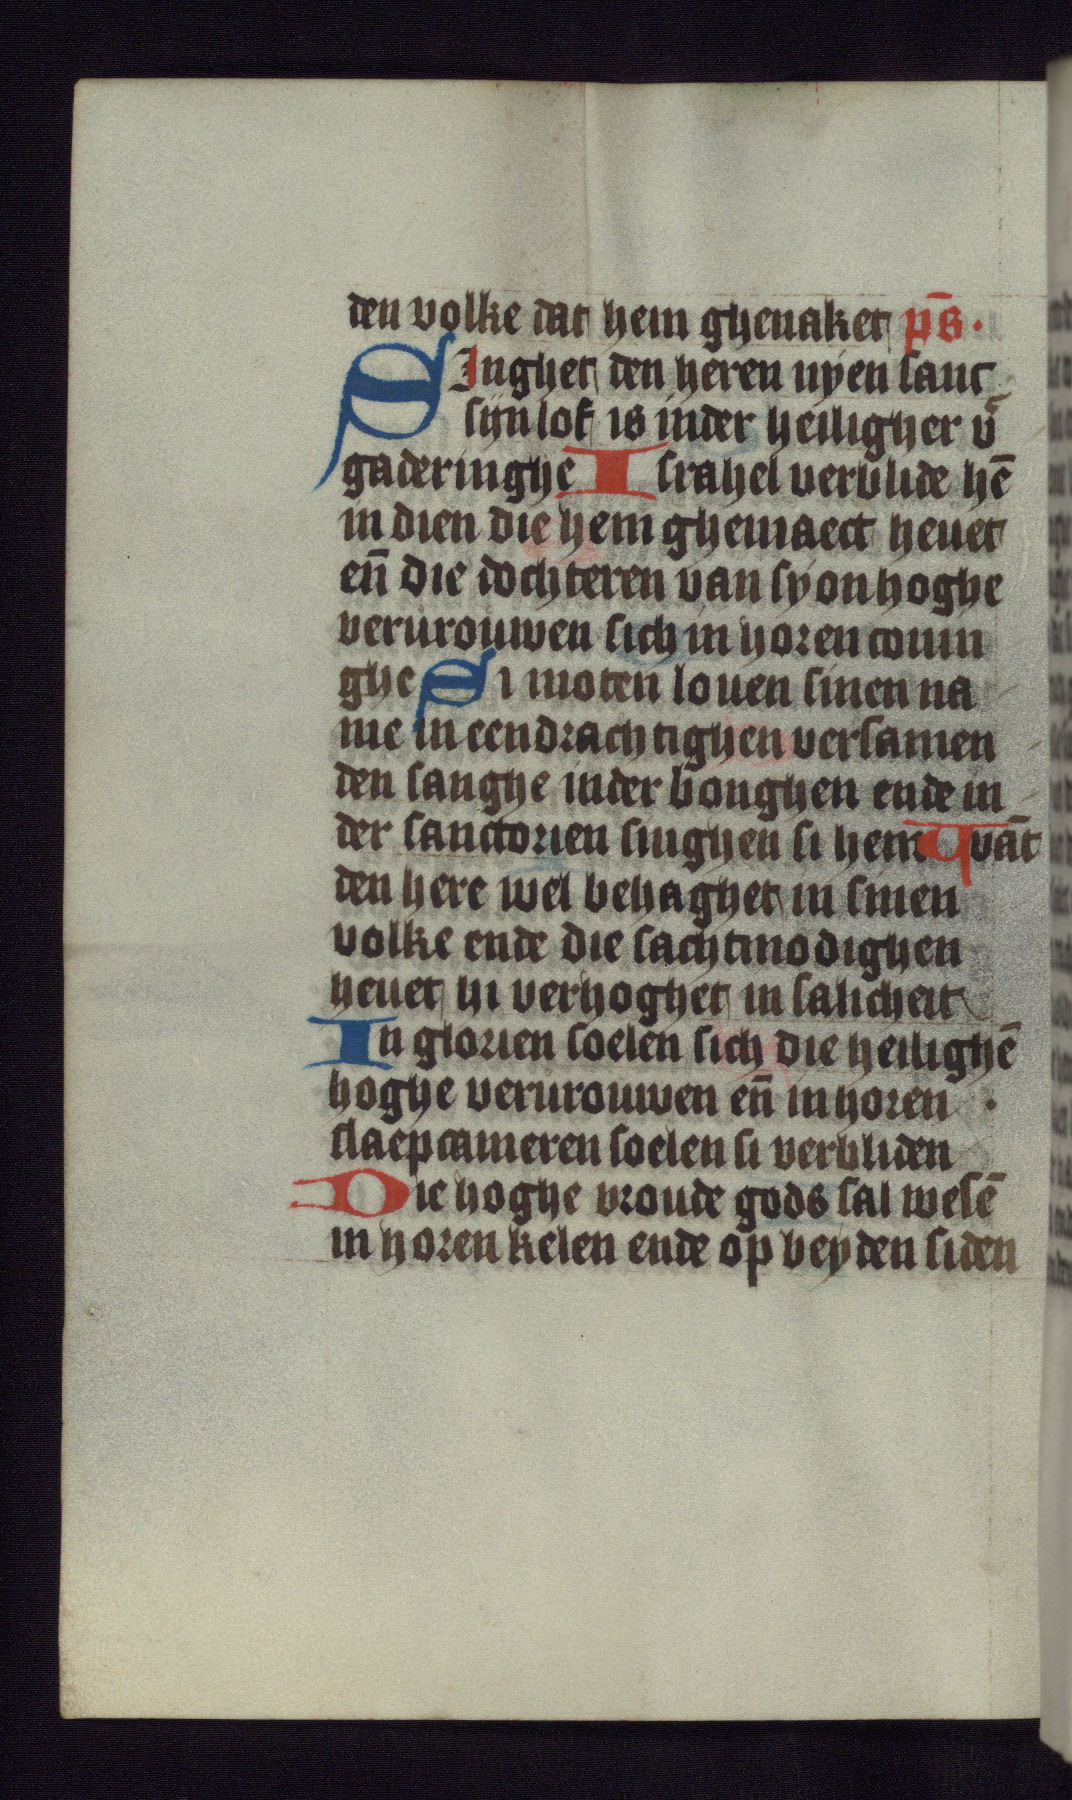 den volke dat hem ghenaket ps̄.
SInghet den heren nyen sanc
sijn lof is inder heiligher v̄
gaderinghe Israhel verblide hē
in dien die hem ghemaect heuet
eñ die dochteren van syon hoghe
verurouwen sich in horen conin
ghe Si moten louen sinen na
me in eendrachtighen versamen
den sanghe inder bonghen ende in
der sanctorien singhen si hem Quāt
den here wel behaghet in sinen
volke ende die sachtmodighen
heuet hi verhoghet in salicheit
In glorien soelen sich die heilighē
hoghe verurouwen eñ in horen
slaepcameren soelen si verbliden
Die hoghe vroude gods sal wesē
in horen kelen ende op beyden siden